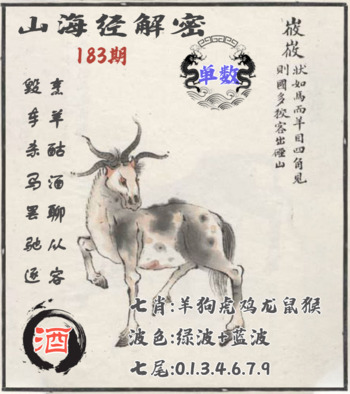 山海经解密
183期
单数
峳峳
狀如馬而羊目四角見
則國多狡客出硜山
烹羊酤酒聊从容
毁车杀马罢驰逐
酒
七肖:羊狗虎鸡龙鼠猴
波色:绿波+蓝波
七尾:0.1.3.4.6.7.9